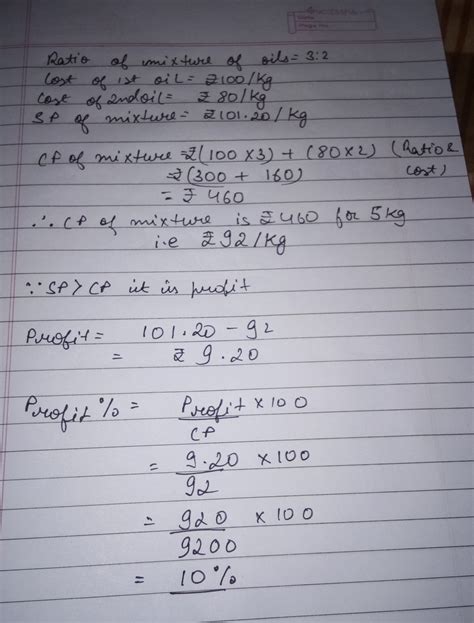 Ratio of mixture of oils = 3:2
Cost of 1st oil = ₹100/kg
Cost of 2nd oil = ₹80/kg
SP of mixture = ₹101.20/kg
CP of mixture = ₹(100×3) + (80×2) (Ratio &
= ₹(300 + 160) cost)
= ₹460
∴ CP of mixture is ₹460 for 5kg
i.e ₹92/kg
∵ SP > CP it is profit
Profit = 101.20 - 92
= ₹9.20
Profit % = Profit × 100
CP
= 9.20 × 100
92
= 920 × 100
9200
= 10%